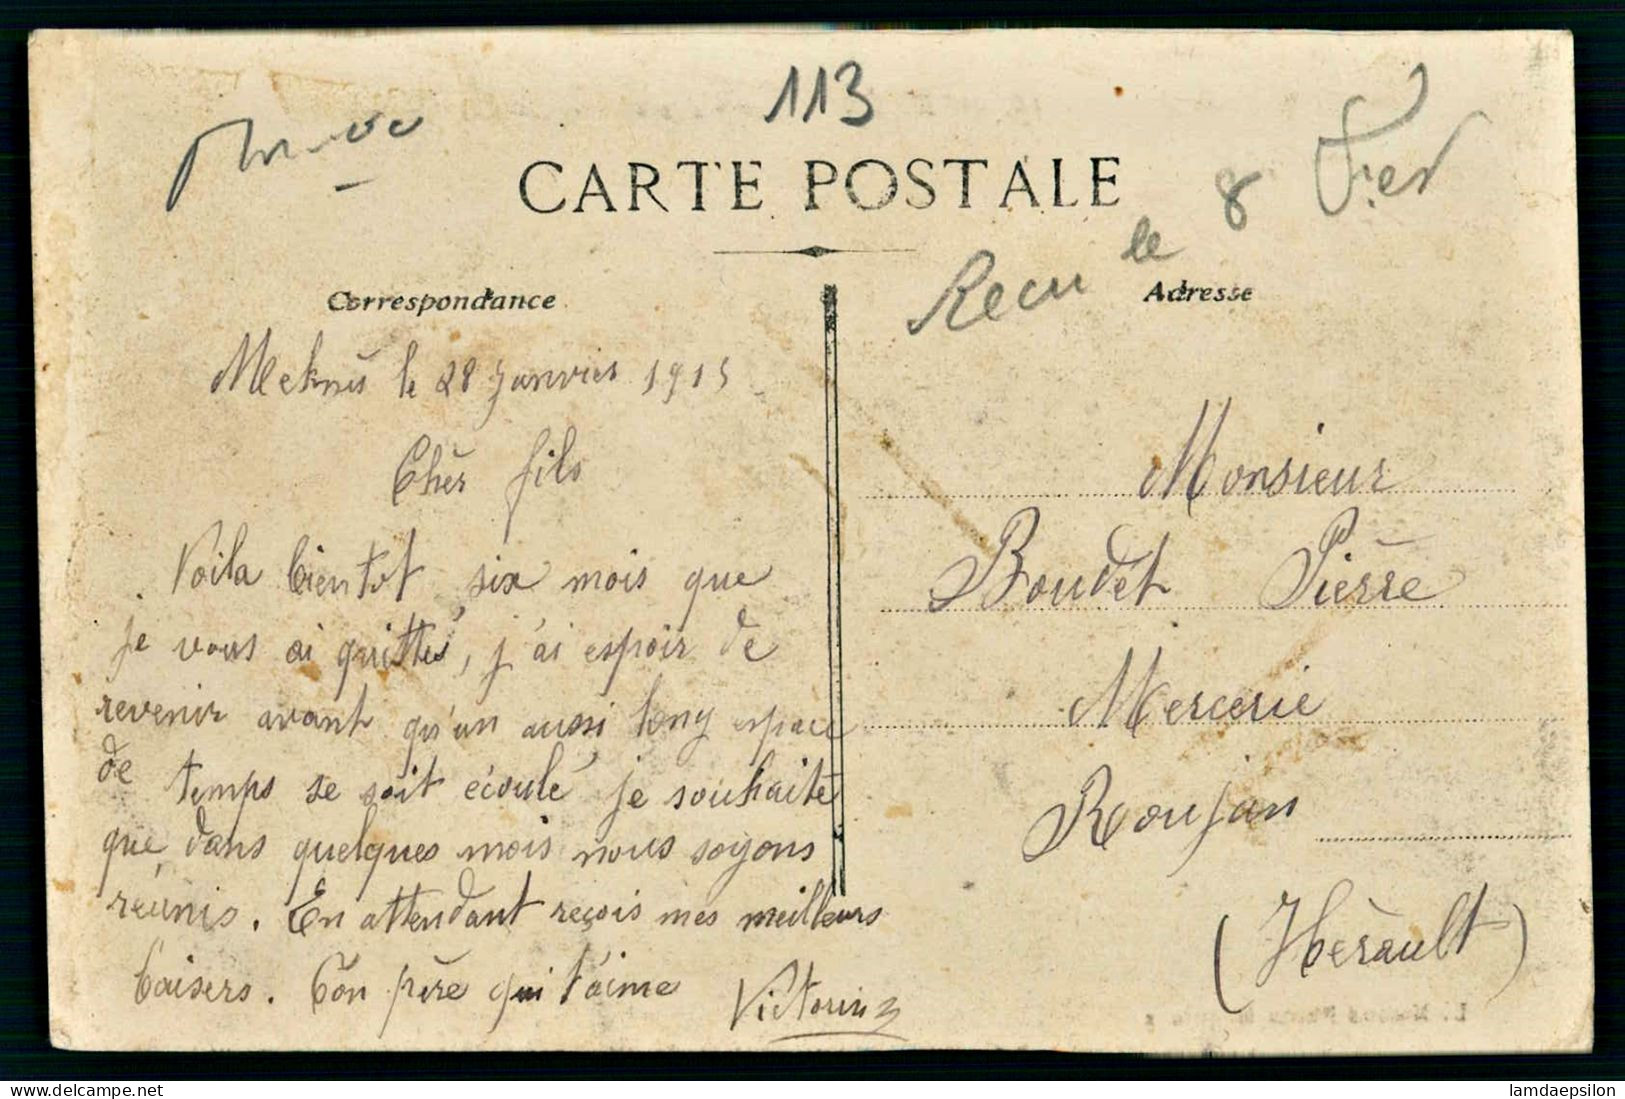 113
CARTE POSTALE
Recu le 8 Fier
Correspondance
Adresse
Meknès le 28 Janvier 1915
Cher fils
Voila bientot six mois que
je vous ai quitté, j'ai espoir de
revenir avant qu'un aussi long espace
de temps se soit écoulé je souhaite
que dans quelques mois nous soyons
réunis. En attendant reçois mes meilleurs
baisers. Ton père qui t'aime
Victorin
Monsieur
Boudet Pierre
Mercerie
Roujan
(Hérault)
delcampe.net
lamdaepsilon